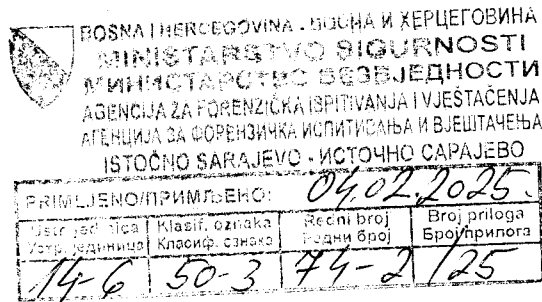 BOSNA I HERCEGOVINA - БОСНА И ХЕРЦЕГОВИНА
MINISTARSTVO SIGURNOSTI
МИНИСТАРСТВО БЕЗБЈЕДНОСТИ
AGENCIJA ZA FORENZIČKA ISPITIVANJA I VJEŠTAČENJA
АГЕНЦИЈА ЗА ФОРЕНЗИЧКА ИСПИТИВАЊА И ВЈЕШТАЧЕЊА
ISTOČNO SARAJEVO - ИСТОЧНО САРАЈЕВО
PRIMLJENO/ПРИМЉЕНО: 04.02.2025.
Ustr. jedinica Klasif. oznaka Redni broj Broj priloga
Устр. јединица Класиф. ознака Редни број Број прилога
14-6 50-3 74-2 /25